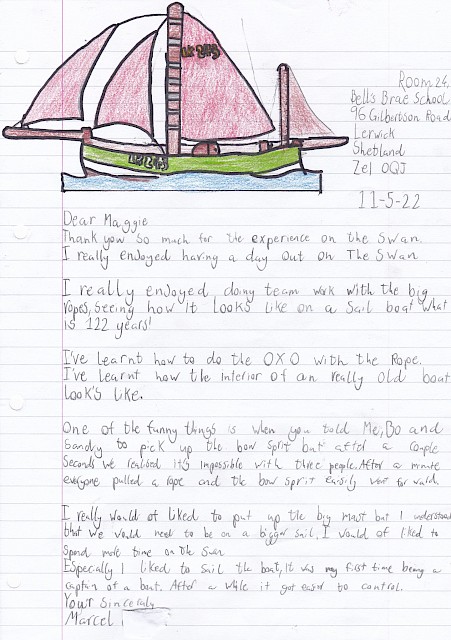 LK 243
LK 243
Room 24,
Bell's Brae School
96 Gilbertson Road
Lerwick
Shetland
Ze1 0QJ
11-5-22
Dear Maggie
Thank you so much for the experience on the Swan.
I really enjoyed having a day out on The Swan.
I really enjoyed doing team work with the big
ropes, seeing how it looks like on a Sail boat what
is 122 years!
I've learnt how to do the OXO with the Rope.
I've learnt how the interior of an really old boat
look's like.
One of the funny things is when you told Me, Bo and
Sandy to pick up the bow sprit but after a couple
Seconds we realised it's impossible with three people. After a minute
everyone pulled a rope and the bow sprit easily went for ward.
I really would of liked to put up the big mast but I understood
that we would need to be on a bigger sail, I would of liked to
spend more time on the Swan
Especially I liked to sail the boat, it was my first time being a
captain of a boat. After a while it got easier to control.
Your Sincerely
Marcel